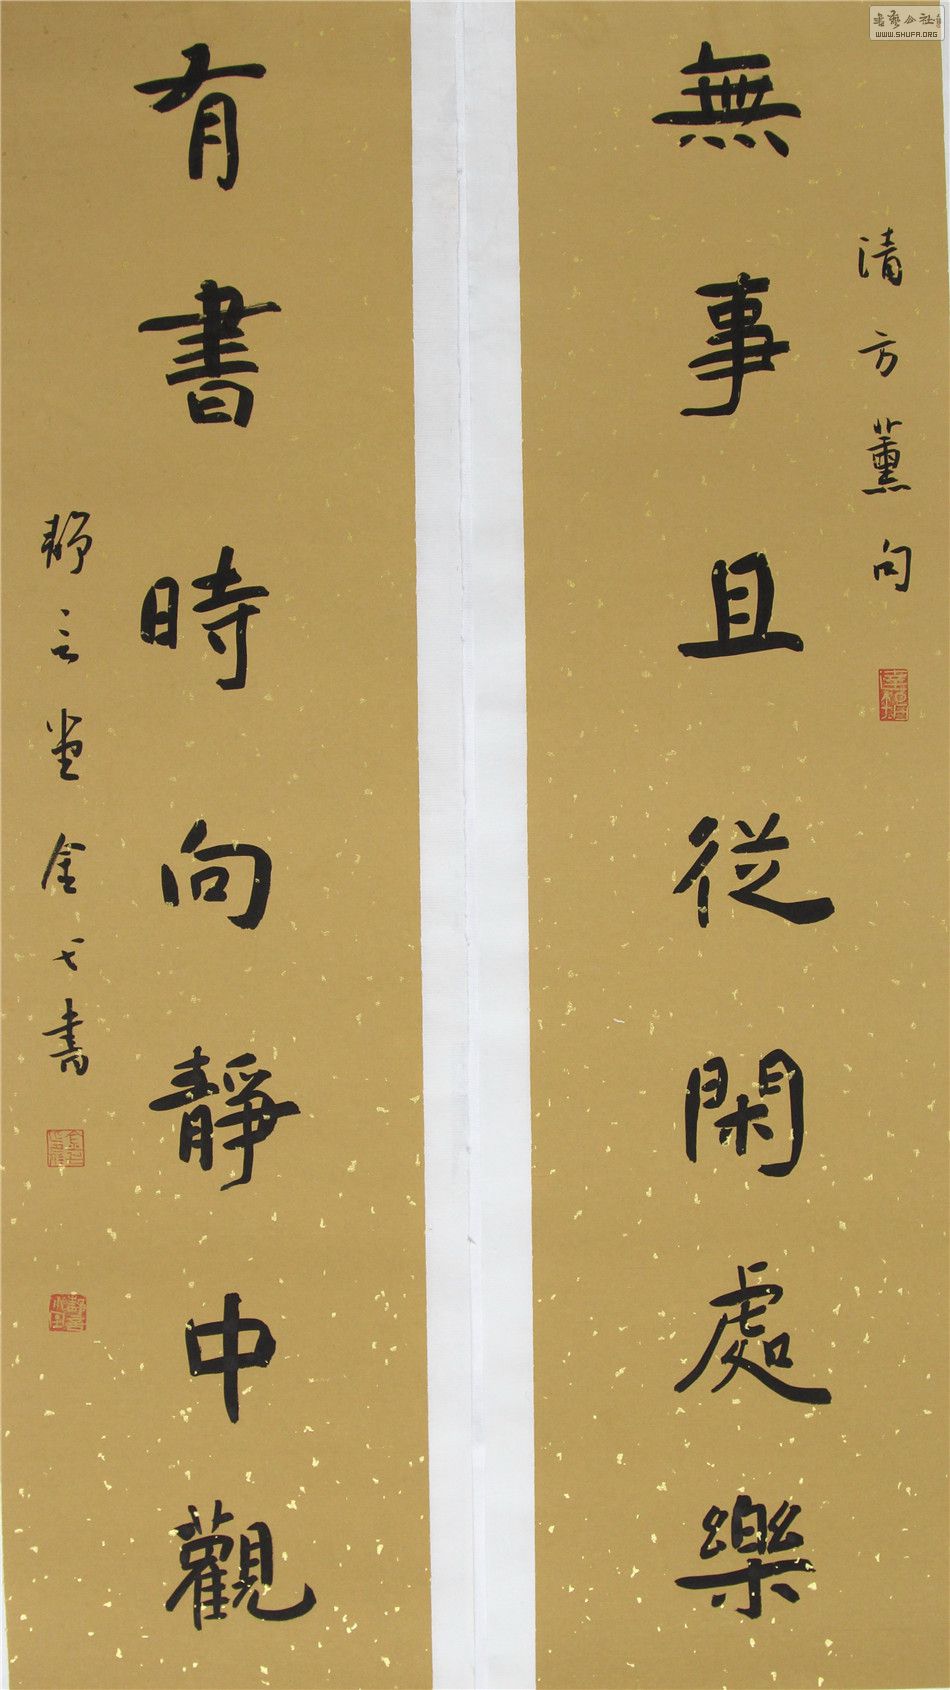 書藝公社
WWW.SHUFA.ORG
清方薰句
無事且從閑處樂
有書時向靜中觀
靜言堂金弋書